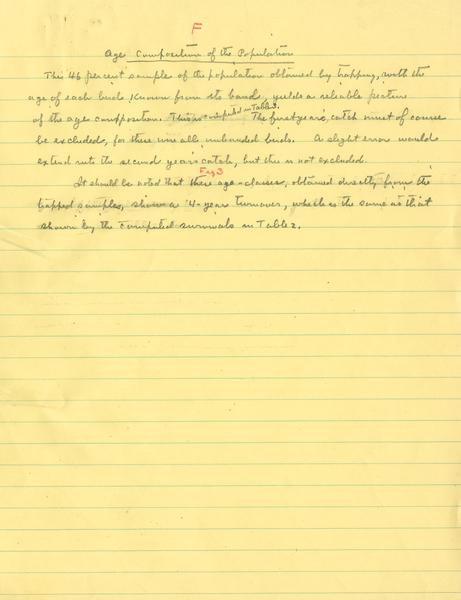 F
Age Composition of the Population
This 46 percent sample of the population obtained by trapping, with the
age of each bird known from its band, yields a reliable picture
of the age composition. This is computed in Table 3. The first years' catch must of course
be excluded, for these were all unbanded birds. A slight error would
extend into the second year's catch, but this is not excluded.
Fig 3
It should be noted that these age-classes, obtained directly from the
trapped samples, show a 4-year turnover, which is the same as that
shown by the computed survivals in Table 2.